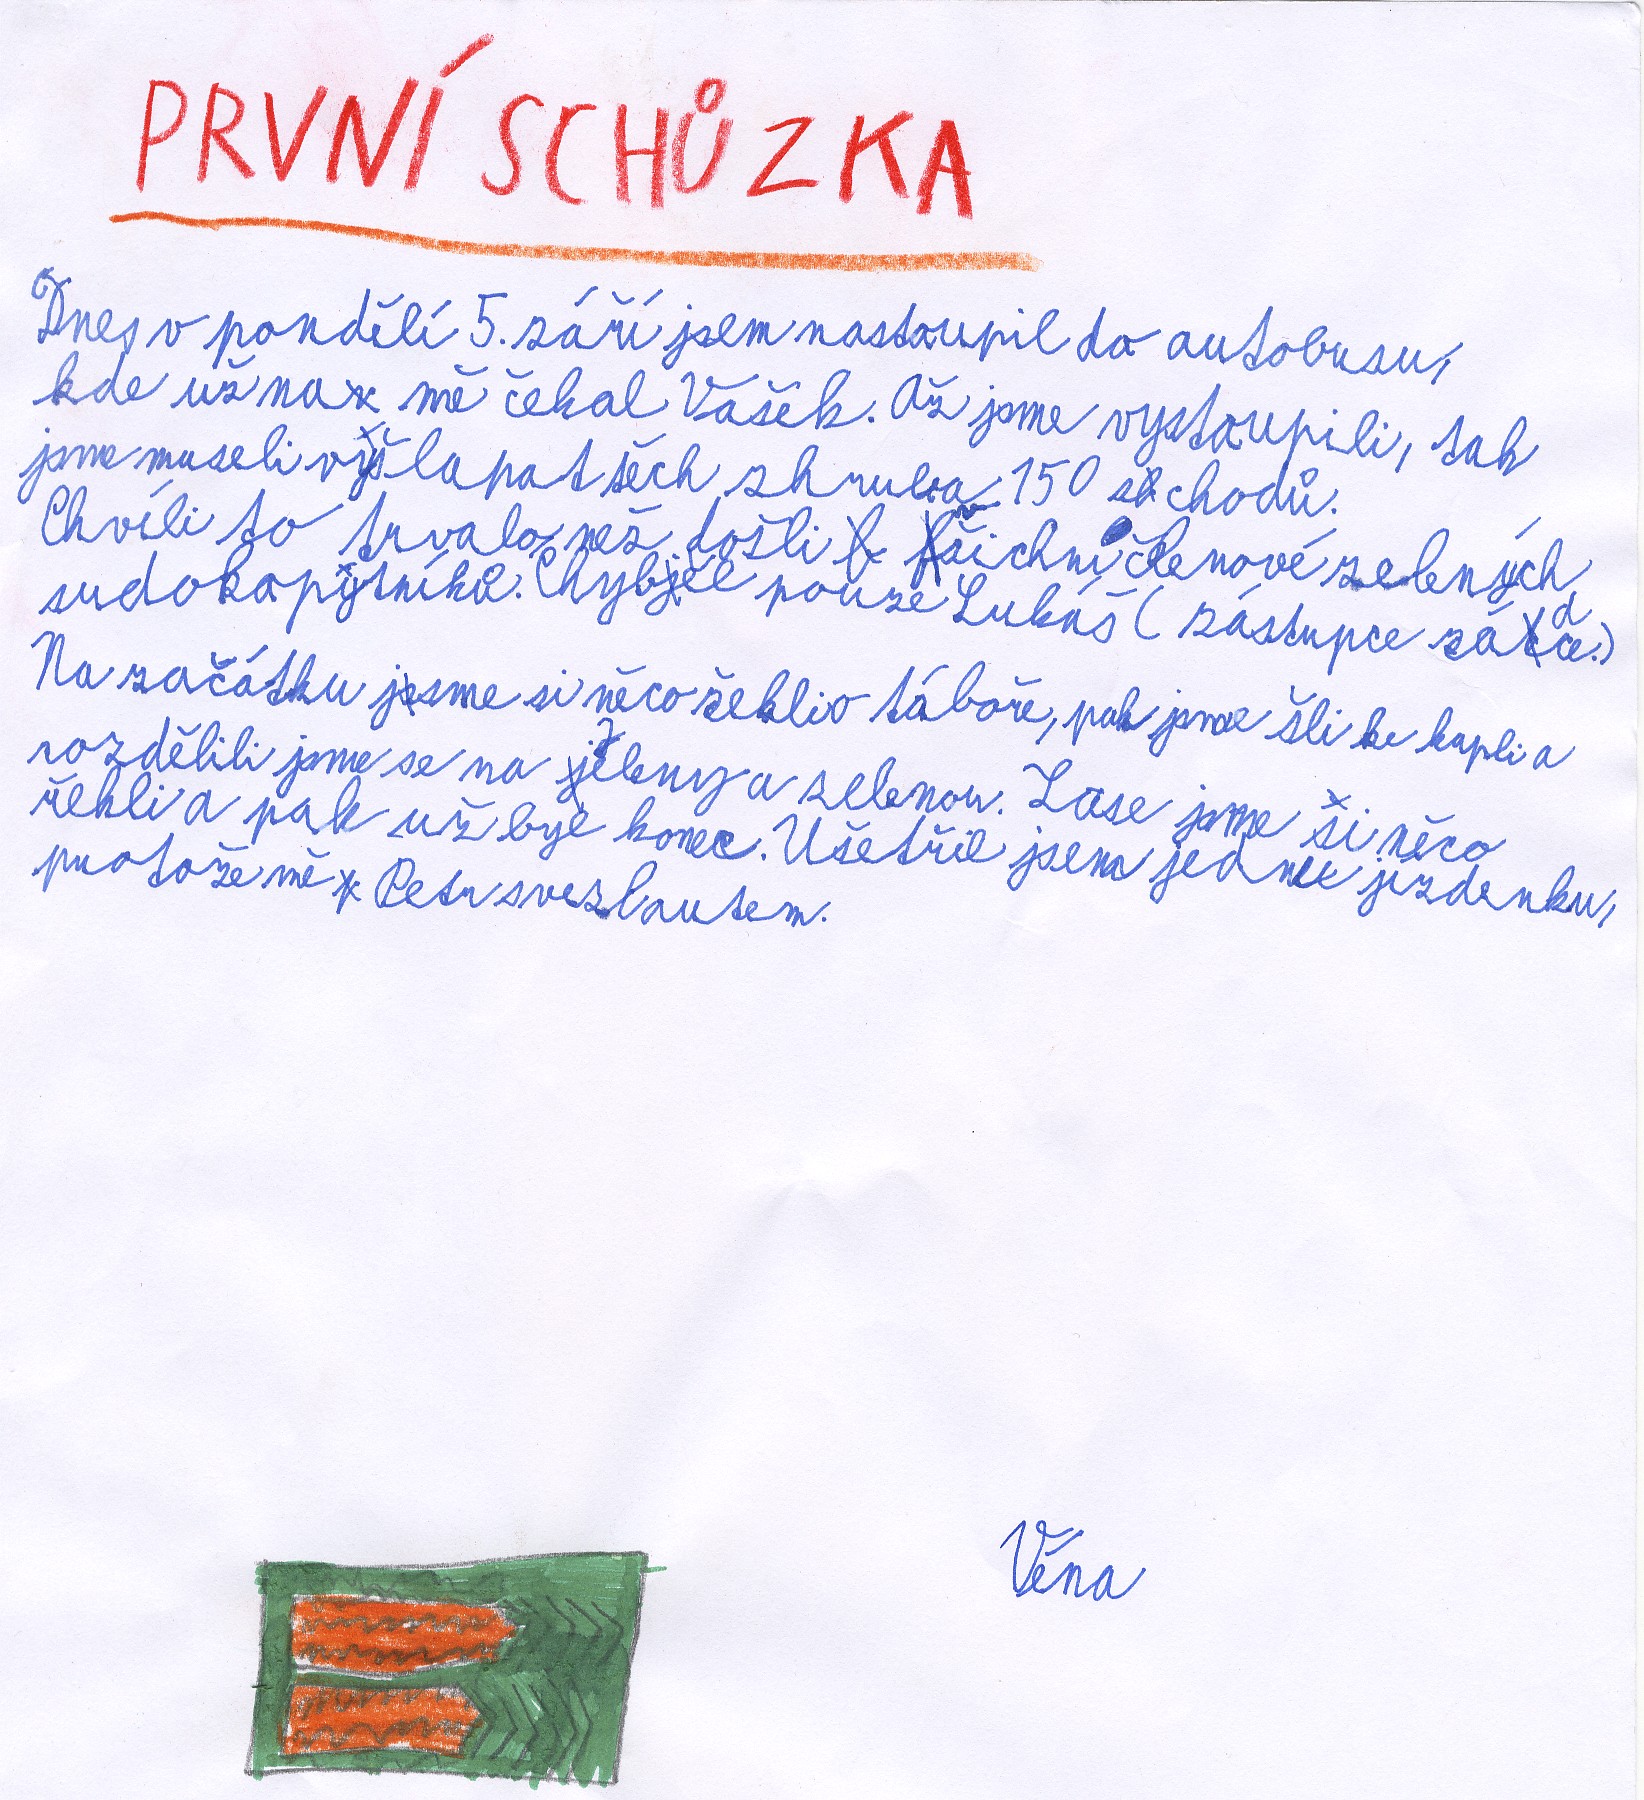 PRVNÍ SCHŮZKA
Dnes v pondělí 5. září jsem nastoupil do autobusu,
kde už na mě čekal Vašék. Až jsme vystoupili, tak
jsme museli vyšlapat těch zhruba 150 schodů.
Chvíli to trvalo, než došli všichni členové zelených
sudokopytníků. Chyběl pouze Lukáš (zástupce zádce.)
Na začátku jsme si něco řekli o táboře, pak jsme šli ke kapli a
rozdělili jsme se na jeleny a zelenou. Zase jsme si něco
řekli a pak už byl konec. Ušetřil jsem jednu jízdenku,
protože mě Petr svezl autem.
Věna